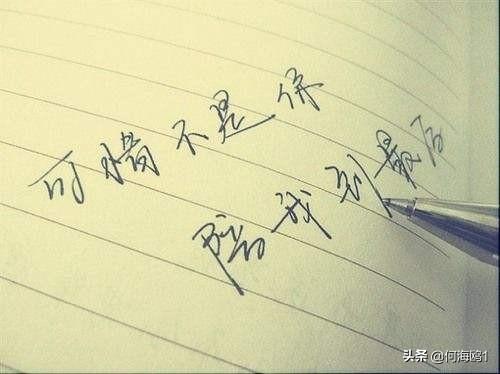 可惜不是你
陪我到最后
头条 @何海鸥1